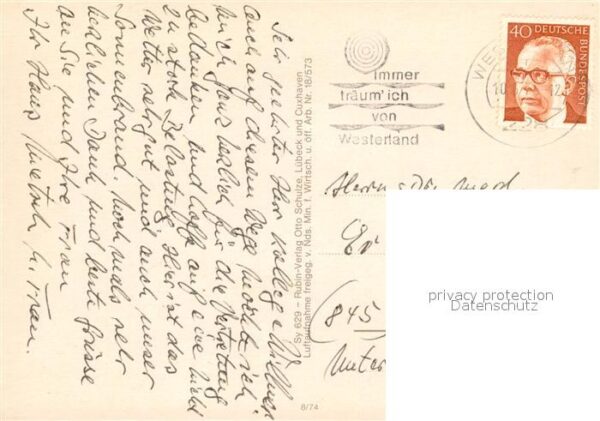 Sehr geehrter Herr Kollege
auch auf diesem Weg möchte ich
mich ganz herzlich für die Vertretung
bedanken und hoffe auf eine nicht
zu starke Belastung. Hier ist das
Wetter sehr gut und auch unser
Sonnenbrand. Nochmals sehr
herzlichen Dank und beste Grüsse
an Sie und Ihre Frau
Ihr Hans
Sy 629 – Rubin-Verlag Otto Schulze, Lübeck und Cuxhaven
Luftaufnahme freigeg. v. Nds. Min. f. Wirtsch. u. öff. Arb. Nr. 18/573
8/74
immer
träum' ich
von
Westerland
40 DEUTSCHE BUNDESPOST
Herrn Dr. med.
(845)
privacy protection
Datenschutz